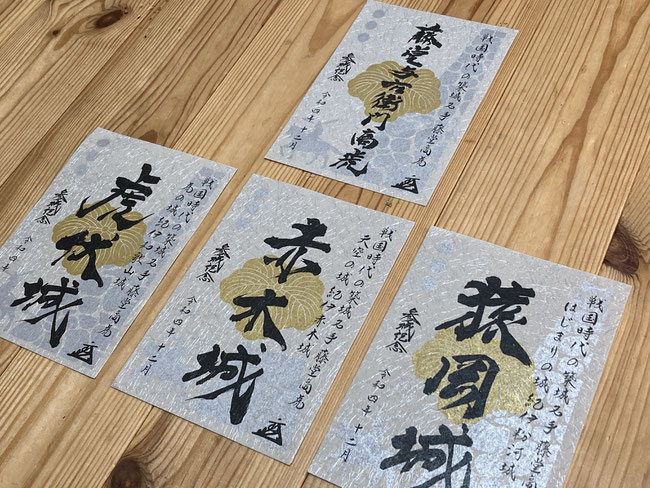 戦国時代の築城名手藤堂高虎
藤堂与右衛門高虎
参城記念
令和四年十二月
戦国時代の築城名手藤堂高虎
虎の城 紀伊和歌山城
虎伏城
参城記念
令和四年
戦国時代の築城名手藤堂高虎
天空の城 紀伊赤木城
赤木城
参城記念
令和四年十二月
戦国時代の築城名手藤堂高
はじまりの城 紀伊粉河城
猿岡城
参城記念
令和四年十二月